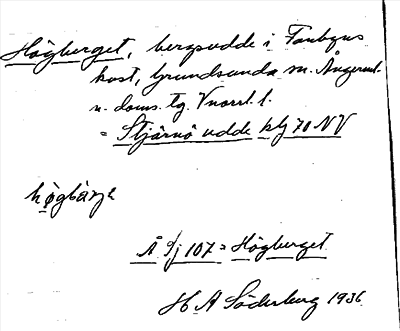 Högberget, bergsudde i Fanbyns
kust, Grundsunda sn. Ångerml.
n. doms. tg. Vnorrl. l.
= Stjärnö udde kbj 70 NV
högbärje
Å Sj 107 = Högberget
H A Söderberg 1936